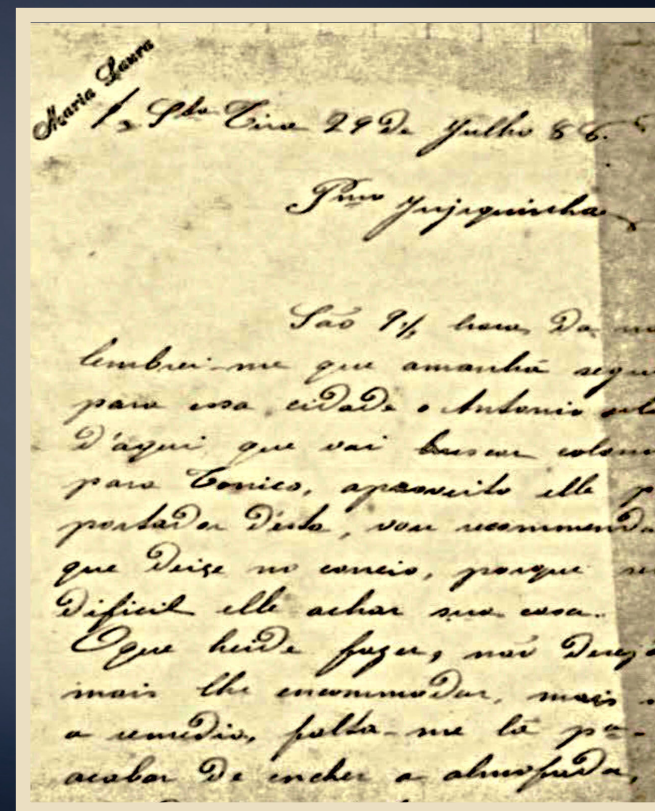 Maria Laura
Sta 29 de Julho 86.
Pmo
São 9½ horas da
lembrei-me que amanhã segue
para essa cidade o Antonio
d'aqui que vai buscar colono
para Tonico, aproveito elle
portador desta, vou recommenda
que deixe no correio, porque
dificil elle achar sua casa.
O que heide fazer, não desejo
mais lhe encommodar, mais
o remedio, falta-me lã pa
acabar de encher a almofada,